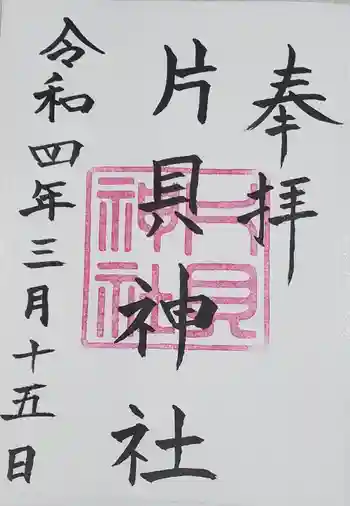 奉拝
片貝神社
令和四年三月十五日
片貝
神社